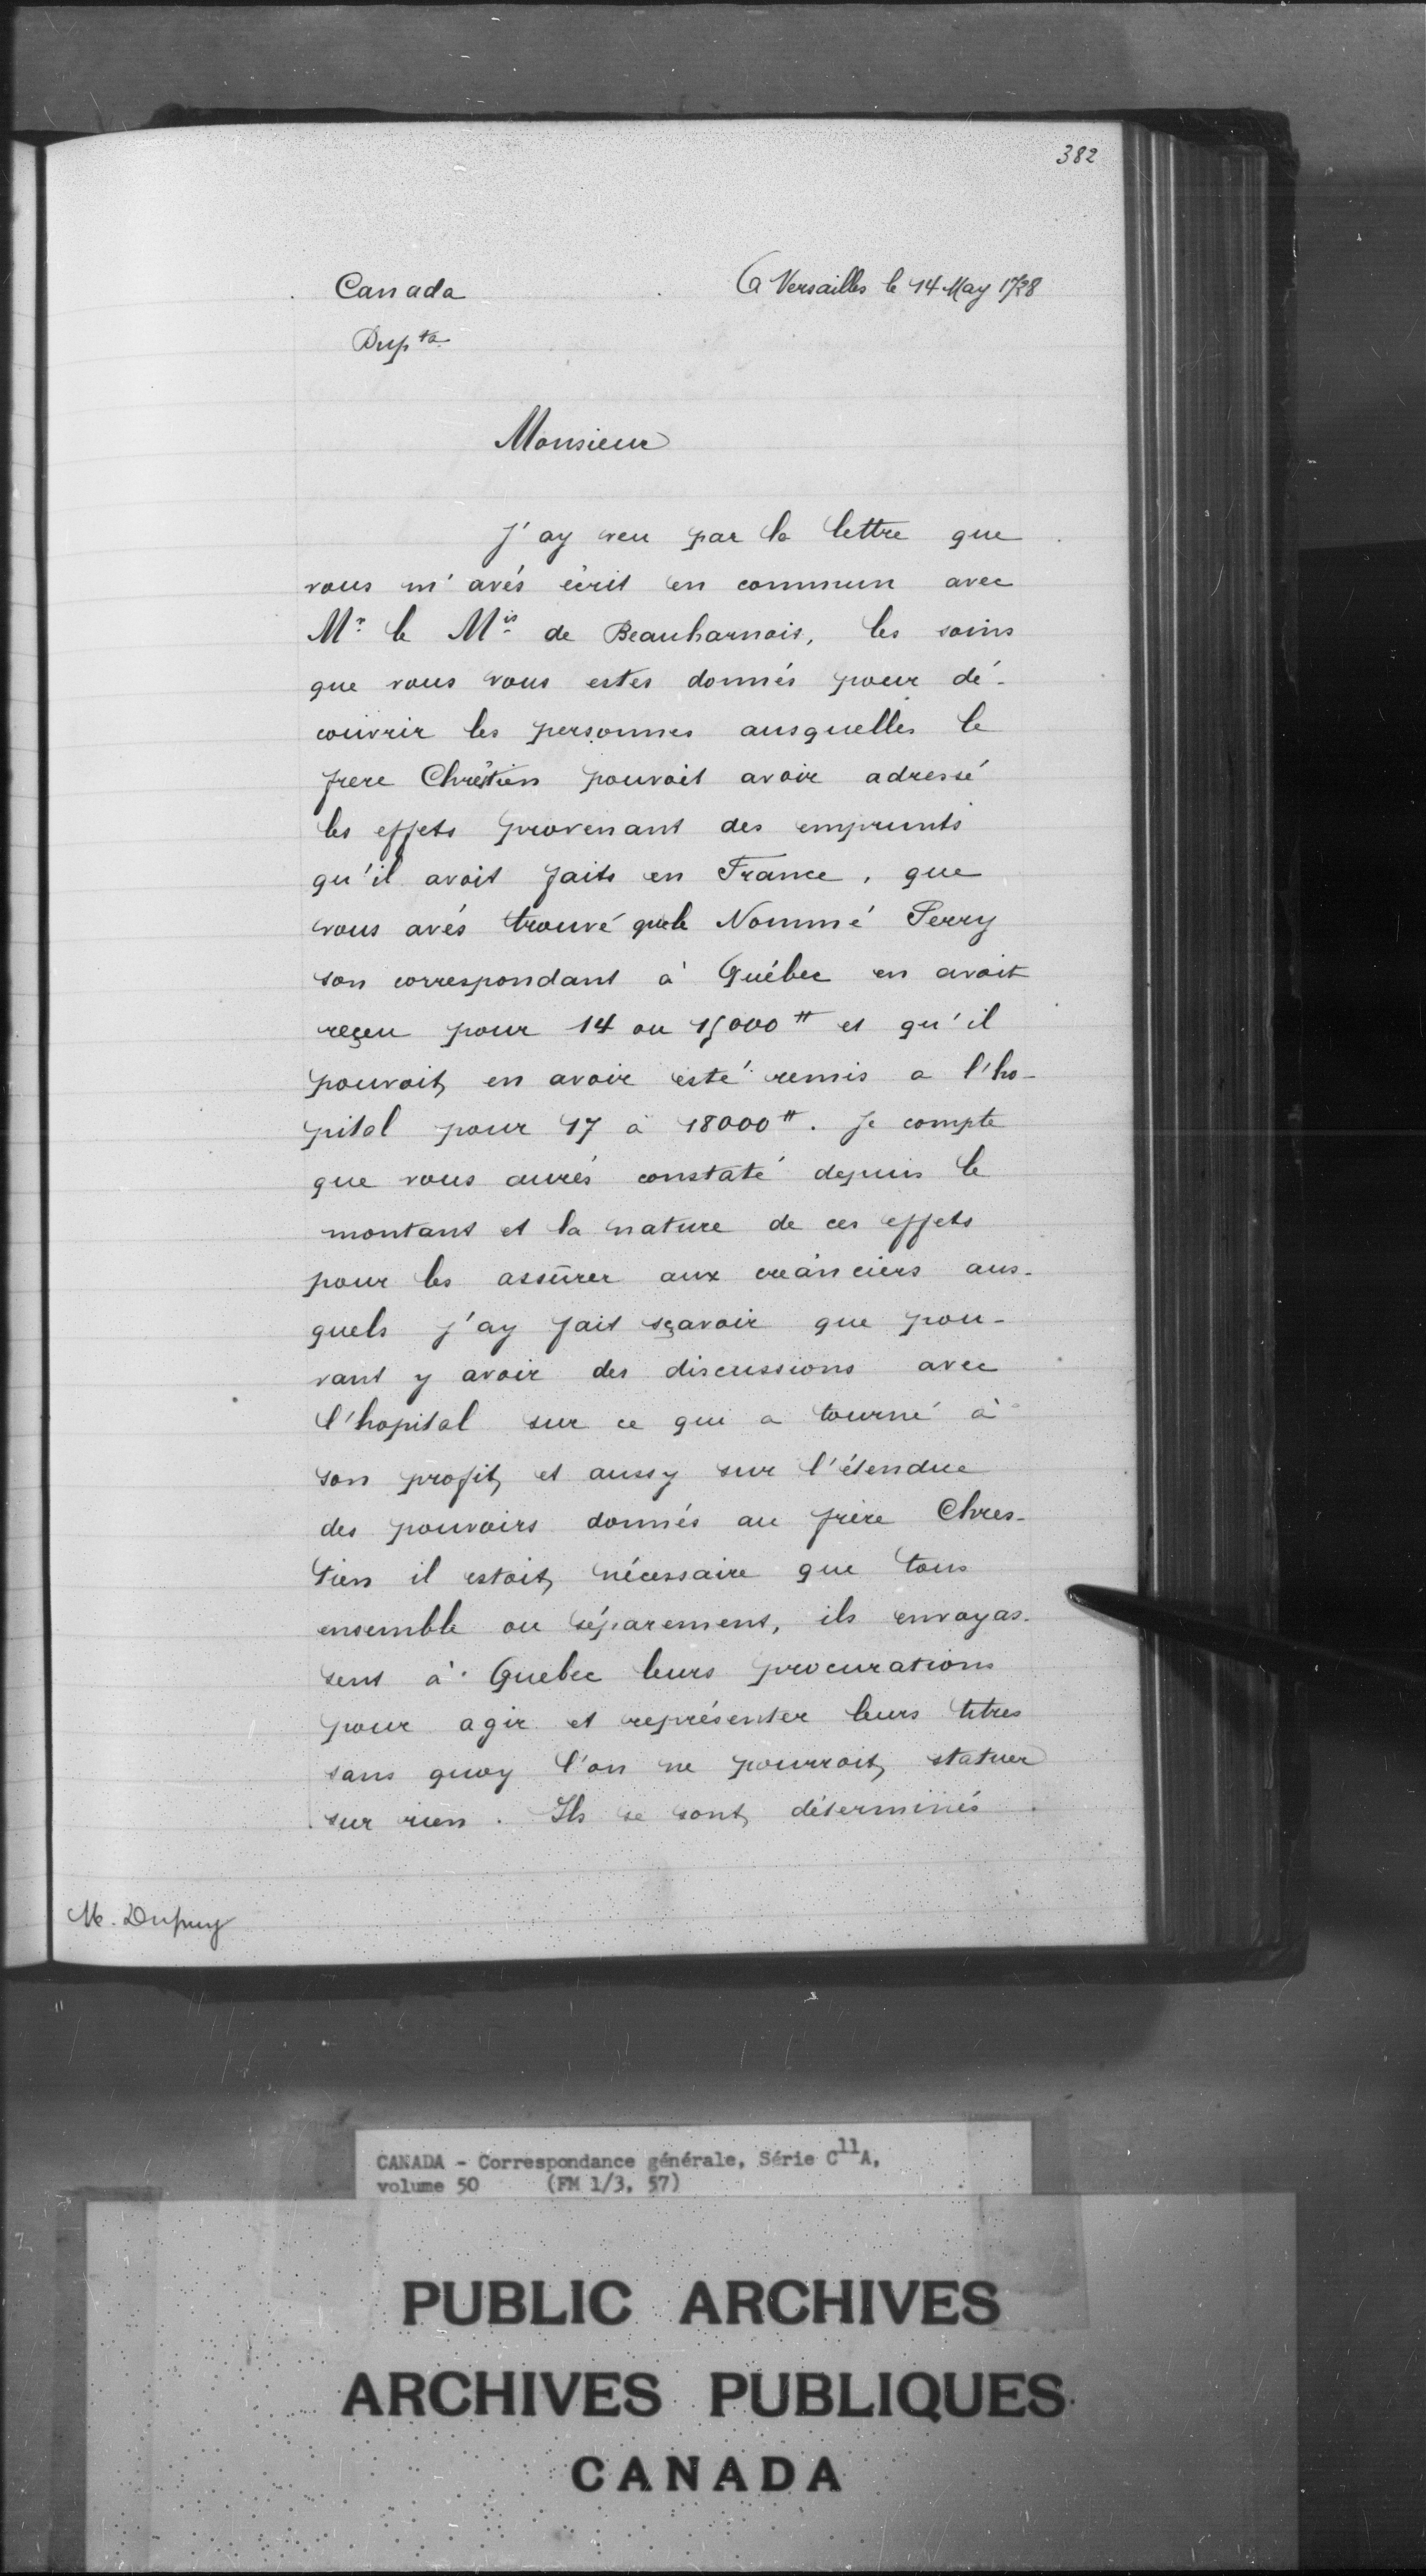 382
Canada
A Versailles le 14 May 1728
Dup.ta
Monsieur
J'ay veu par la lettre que
vous m'avés écrit en commun avec
Mr. le Mis de Beauharnois, les soins
que vous vous estes donnés pour dé-
couvrir les personnes ausquelles le
frere Chrêtien pouvoit avoir adressé
les effets provenant des emprunts
qu'il avoit faits en France, que
vous avés trouvé que le Nommé Perry
son correspondant à Québec en avoit
reçeu pour 14 ou 15000 ₶ et qu'il
pouvoit en avoir esté remis a l'ho-
pital pour 17 à 18000 ₶. Je compte
que vous aurés constaté depuis le
montant et la nature de ces effets
pour les assûrer aux créanciers aus-
quels j'ay fait sçavoir que pou-
vant y avoir des discussions avec
l'hopital sur ce qui a tourné à
son profit, et aussy sur l'étendue
des pouvoirs donnés au frère Chres-
tien il estoit nécessaire que tous
ensemble ou séparement, ils envoyas-
sent à Quebec leurs procurations
pour agir et représenter leurs titres
sans quoy l'on ne pourroit statuer
sur rien. Ils se sont déterminés
M. Dupuy
CANADA - Correspondance générale, Série C11A,
volume 50 (FM 1/3, 57)
PUBLIC ARCHIVES
ARCHIVES PUBLIQUES
CANADA